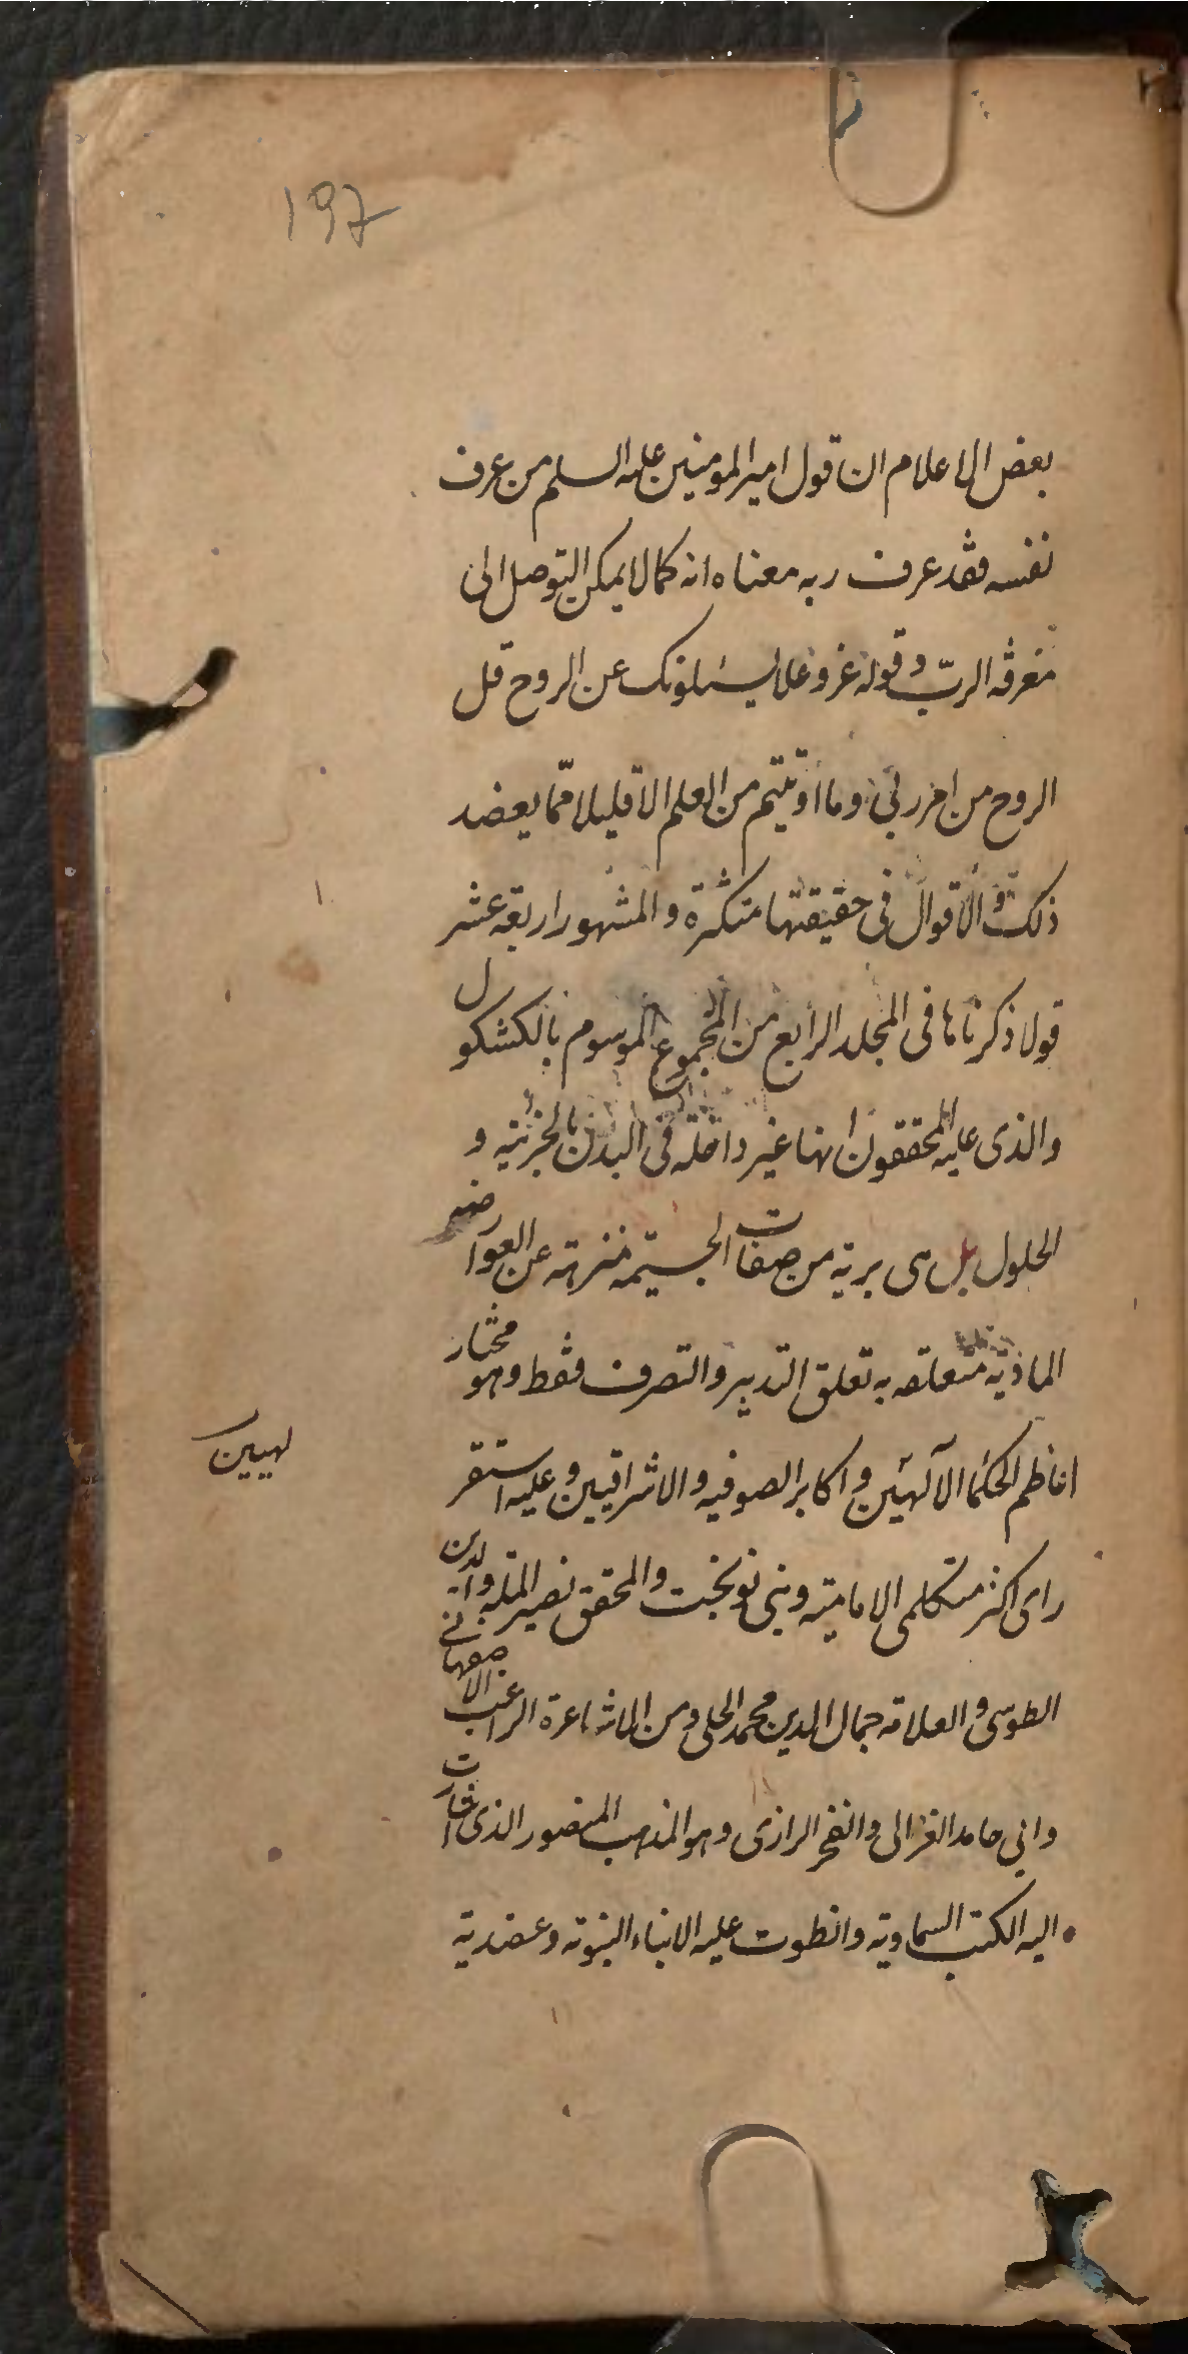 197
بعض الاعلام ان قول امير المومنين عليه السلم من عرف
نفسه فقد عرف ربه معناه انه كما لا يمكن التوصل الى
معرفة الربّ وقوله عز وعلا يسئلونك عن الروح قل
الروح من امر ربي وما اوتيتم من العلم الا قليلا ممّا يعضد
ذلك والاقوال في حقيقتها متكثرة والمشهور اربعة عشر
قولا ذكرناها في المجلد الرابع من المجموع الموسوم بالكشكول
والذى عليه المحققون انها غير داخلة في البدن بالجزئية و
الحلول بل هى برية من صفات الجسمية منزهة عن العوارض
المادية متعلقه به تعلق التدبير والتصرف فقط وهو مختار
اعاظم الحكما الآلهيين واكابر الصوفيه والاشراقيين وعليه استقر
لهيين
راى اكثر متكلمى الامامية وبنى نوبخت والمحقق نصير الملة والدين
الطوسى والعلامة جمال الدين محمد الحلى ومن الاشاعرة الراغب الاصفهانى
وابى حامد الغزالى والفخر الرازى وهو المذهب المنصور الذى اشارت
اليه الكتب السماوية وانطوت عليه الانباء النبوية وعضدته